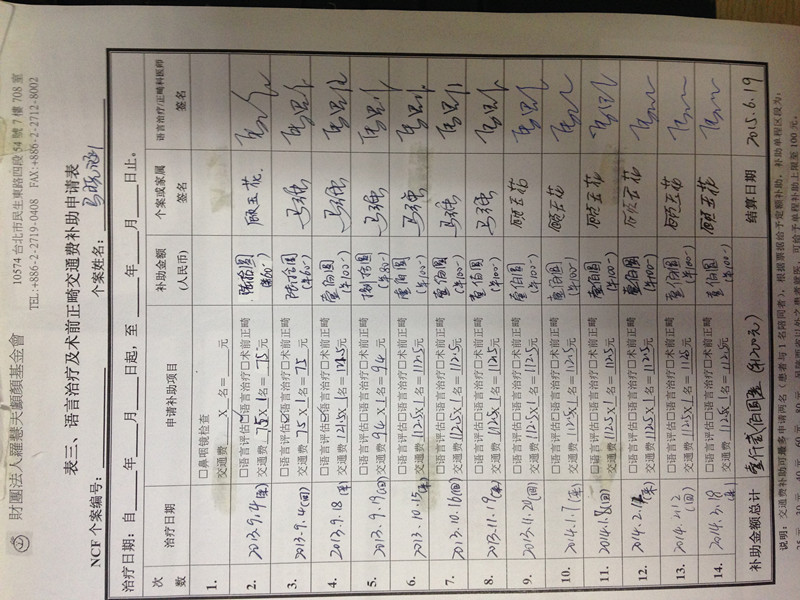 財團法人羅慧夫顱顏基金會
10574 台北市民生東路四段 54 號 7 樓 708 室
TEL:+886-2-2719-0408 FAX:+886-2-2712-8002
表三、语言治疗及术前正畸交通费补助申请表
NCF 个案编号: 个案姓名:
治疗日期: 自 年 月 日起, 至 年 月 日止。
次数 治疗日期 申请补助项目 补助金额(人民币) 个案或家属签名 语言治疗/正畸科医师签名
1. □鼻咽镜检查 交通费 X 名= 元
2. 2013.9.4(来) 语言评估□语言治疗□术前正畸 交通费 75 X 1 名= 75 元 陆拾圆(¥60.-) 顾玉花
3. 2013.9.4(回) □语言评估 语言治疗□术前正畸 交通费 75 X 1 名= 75 元 陆拾圆(¥60.-)
4. 2013.9.18(来) □语言评估 语言治疗□术前正畸 交通费 X 1 名= 元 壹佰圆(¥100.-)
5. 2013.9.19(回) □语言评估□语言治疗□术前正畸 交通费 94 X 1 名= 94 元 捌拾圆(¥80.-)
6. 2013.10.15(来) □语言评估□语言治疗□术前正畸 交通费 112.5 X 1 名= 112.5 元 壹佰圆(¥100.-)
7. 2013.10.16(回) □语言评估□语言治疗□术前正畸 交通费 112.5 X 1 名= 112.5 元 壹佰圆(¥100.-)
8. 2013.11.19(来) □语言评估□语言治疗□术前正畸 交通费 112.5 X 1 名= 112.5 元 壹佰圆(¥100.-)
9. 2013.11.20(回) □语言评估□语言治疗□术前正畸 交通费 112.5 X 1 名= 112.5 元 壹佰圆(¥100.-) 顾玉花
10. 2014.1.7(来) □语言评估□语言治疗□术前正畸 交通费 112.5 X 1 名= 112.5 元 壹佰圆(¥100.-) 顾玉花
11. 2014.1.8(回) □语言评估□语言治疗□术前正畸 交通费 112.5 X 1 名= 112.5 元 壹佰圆(¥100.-) 顾玉花
12. □语言评估□语言治疗□术前正畸 交通费 112.5 X 1 名= 112.5 元 壹佰圆(¥100.-) 顾玉花
13. (回) □语言评估□语言治疗□术前正畸 交通费 112.5 X 1 名= 112.5 元 壹佰圆(¥100.-) 顾玉花
14. 2014.3.18(来) □语言评估□语言治疗□术前正畸 交通费 112.5 X 1 名= 112.5 元 壹佰圆(¥100.-) 顾玉花
补助金额总计 壹仟贰佰圆整 (¥1200元) 结算日期 2015.6.19
说明: 交通费补助可最多申请两名(患者与 1 名陪同者), 根据票据给予定额补助, 补助单程区段为: